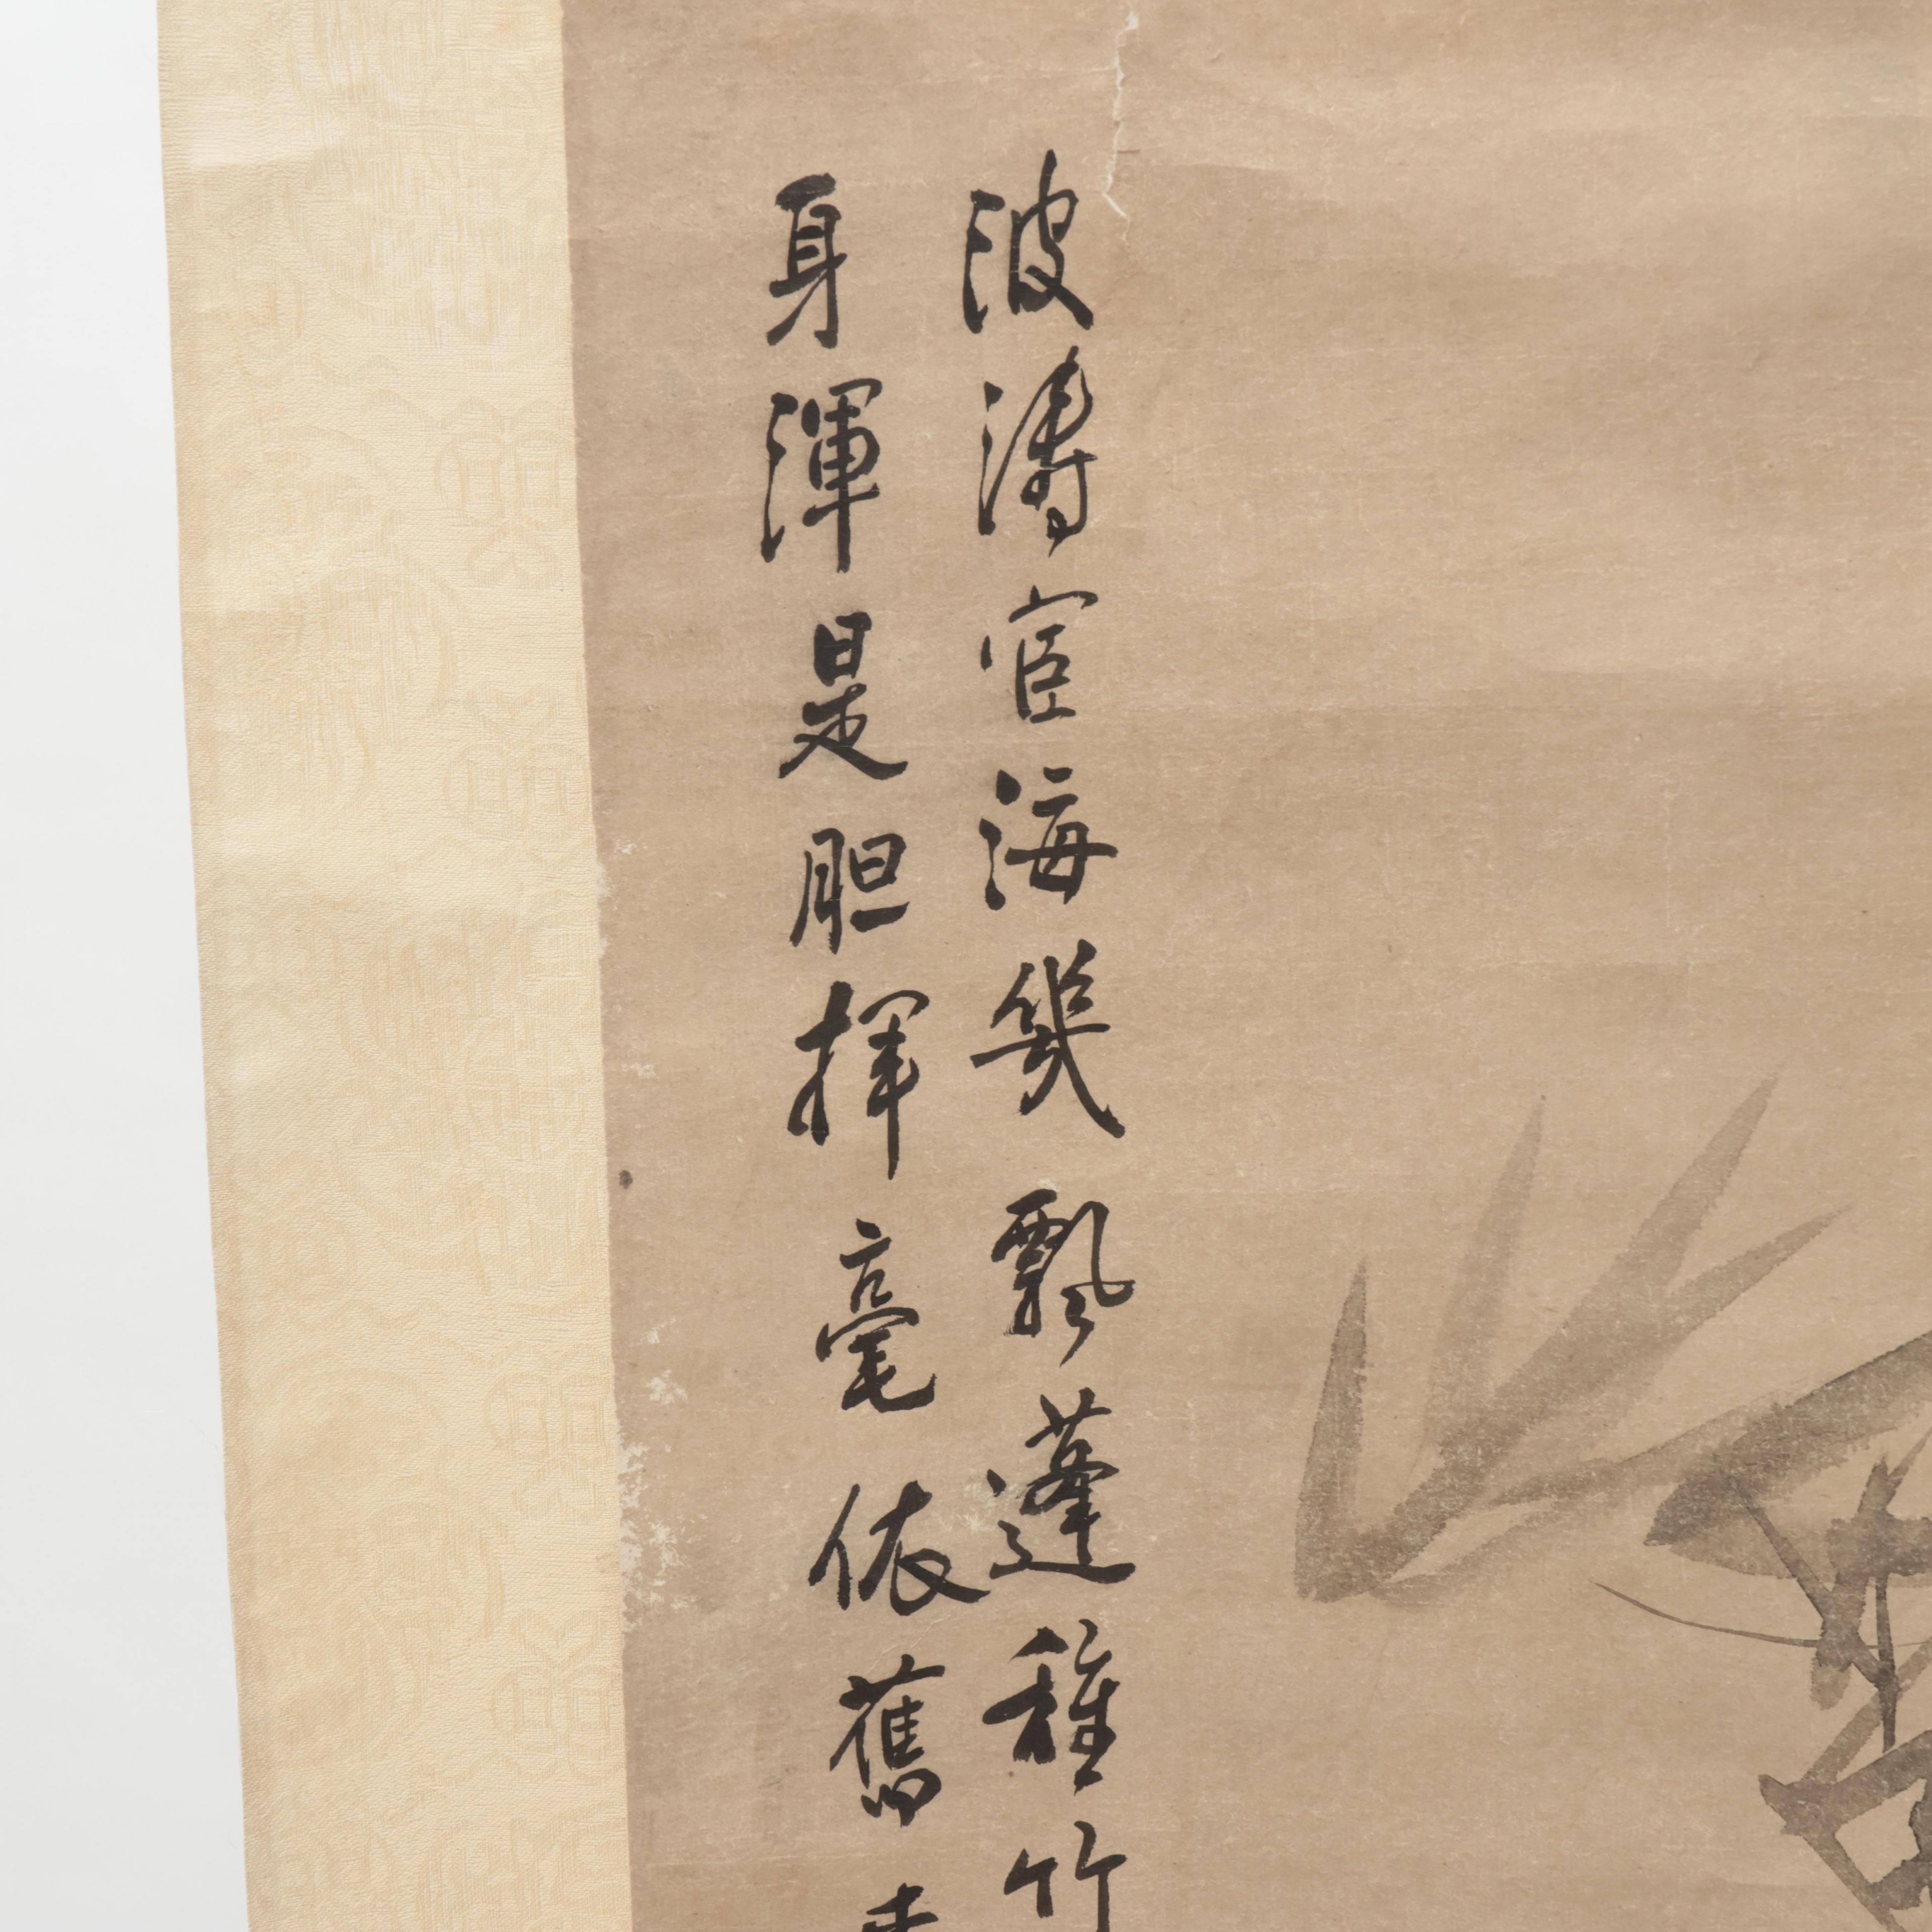 波濤宦海幾飄蓬種竹
身渾是胆揮毫依舊